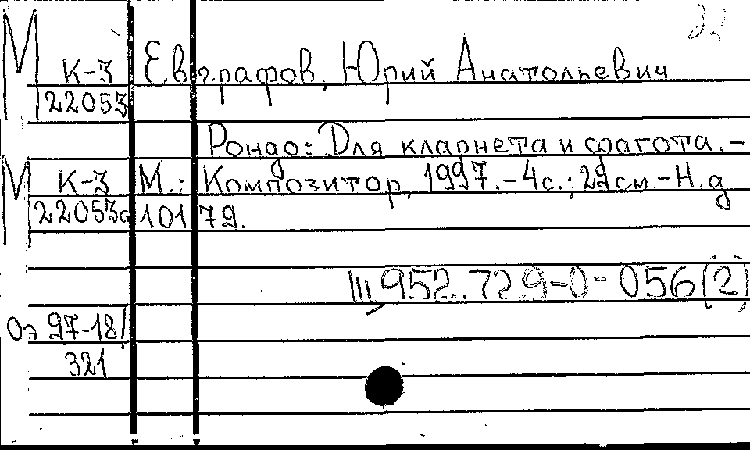 22
М К-3 Евграфов, Юрий Анатольевич
22053
Рондо: Для кларнета и фагота. –
М К-3 М.: Композитор, 1997. – 4с.; 29см – Н.д
22053а 10179.
Ш,952.729-0-056(2)
Оз 97-18/
321